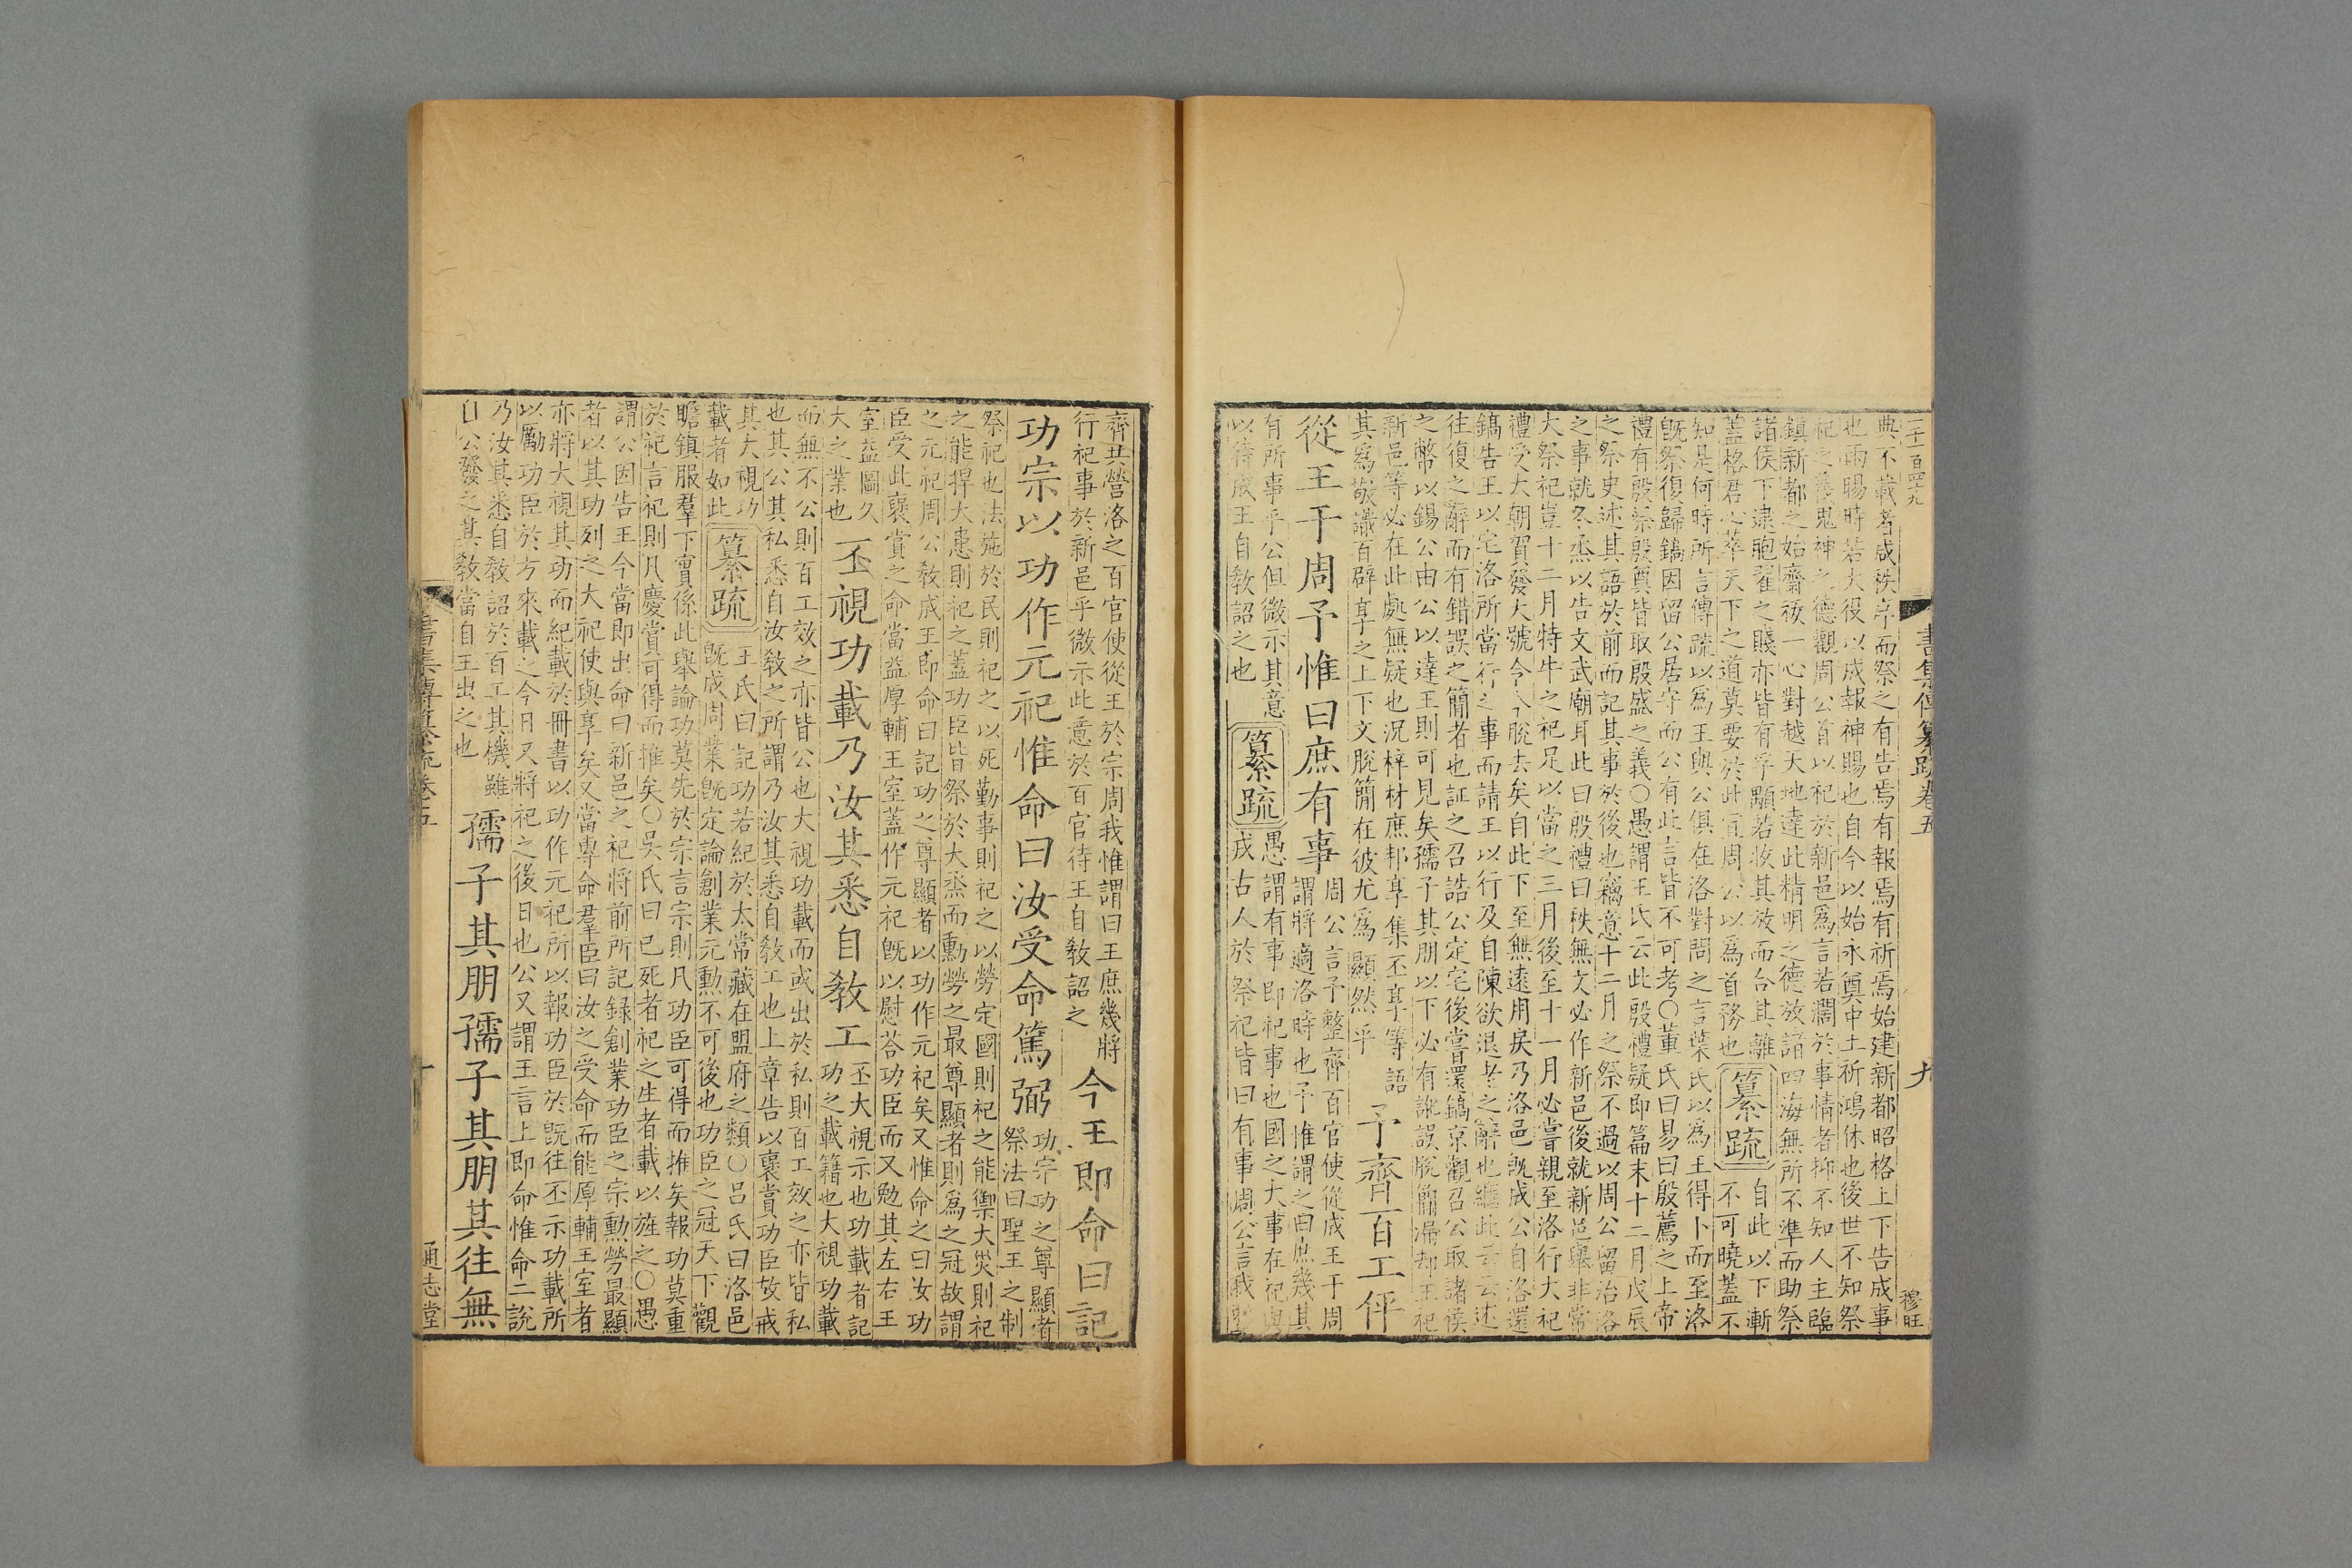 二十一百四九
書集傳纂疏卷五
九
穆旺
典不載者咸秩序而祭之有告焉有報焉有祈焉始建新都昭格上下告成事
也雨暘時若大役以成報神賜也自今以始永奠中土祈鴻休也後世不知祭
祀之義鬼神之德觀周公首以祀於新邑爲言若濶於事情者抑不知人主臨
鎮新都之始齋祓一心對越天地達此精明之德放諸四海無所不準而助祭
諸侯下逮胞翟之賤亦皆有孚顒若收其放而合其離
蓋格君心萃天下之道莫要於此宜周公以爲首務也
纂疏
自此以下漸
不可曉蓋不
知是何時所言傳疏以爲王與公俱在洛對問之言葉氏以爲王得卜而至洛
旣祭復歸鎬因留公居守而公有此言皆不可考○董氏曰易曰殷薦之上帝
禮有殷祭殷奠皆取殷盛之義○愚謂王氏云此殷禮疑即篇末十二月戊辰
之祭史述其語於前而記其事於後也竊意十二月之祭不過以周公留治洛
之事就冬烝以告文武廟耳此曰殷禮曰秩無文必作新邑後就新邑舉非常
大祭祀豈十二月特牛之祀足以當之三月後至十一月必嘗親至洛行大祀
禮受大朝賀發大號令今脫去矣自此下至無遠用戾乃洛邑旣成公自洛還
鎬告王以宅洛所當行之事而請王以行及自陳欲退老之辭也繼此云云述
往復之辭而有錯誤之簡者也証之召誥公定宅後嘗還鎬京觀召公取諸侯
之幣以錫公由公以達王則可見矣孺子其朋以下必有訛誤脫簡漏却王祀
新邑等必在此處無疑也况梓材庶邦享集丕享等語
其爲敬識百辟享之上下文脫簡在彼尤爲顯然乎
予齊百工伻
從王于周予惟曰庶有事
周公言予整齊百官使從成王于周
謂將適洛時也予惟謂之曰庶幾其
有所事乎公但微示其意
以待成王自敎詔之也
纂疏
愚謂有事即祀事也國之大事在祀與
戎古人於祭祀皆曰有事周公言我
齊其營洛之百官使從王於宗周我惟謂曰王庶幾將
行祀事於新邑乎微示此意於百官待王自敎詔之
今王即命曰記
功宗以功作元祀惟命曰汝受命篤弼
功宗功之尊顯者
祭法曰聖王之制
祭祀也法施於民則祀之以死勤事則祀之以勞定國則祀之能禦大災則祀
之能捍大患則祀之蓋功臣皆祭於大烝而勳勞之最尊顯者則爲之冠故謂
之元祀周公敎成王即命曰記功之尊顯者以功作元祀矣又惟命之曰汝功
臣受此褒賞之命當益厚輔王室蓋作元祀旣以慰荅功臣而又勉其左右王
室益圖久
大之業也
丕視功載乃汝其悉自敎工
丕大視示也功載者記
功之載籍也大視功載
而無不公則百工效之亦皆公也大視功載而或出於私則百工效之亦皆私
也其公其私悉自汝敎之所謂乃汝其悉自敎工也上章告以褒賞功臣故戒
其大視功
載者如此
纂疏
王氏曰記功若紀於太常藏在盟府之類○呂氏曰洛邑
旣成周業旣定論創業元勲不可後也功臣之冠天下觀
瞻鎮服羣下實係此舉論功莫先於宗言宗則凡功臣可得而推矣報功莫重
於祀言祀則凡慶賞可得而推矣○吳氏曰已死者祀之生者載以旌之○愚
謂公因告王今當即出命曰新邑之祀將前所記録創業功臣之宗勲勞最顯
者以其功列之大祀使與享矣又當專命羣臣曰汝之受命而能厚輔王室者
亦將大視其功而紀載於冊書以功作元祀所以報功臣於旣往丕示功載所
以勵功臣於方來載之今日又將祀之後日也公又謂王言上即命惟命二說
乃汝其悉自敎詔於百工其機雖
自公發之其敎當自王出之也
孺子其朋孺子其朋其往無
書集傳纂疏卷五
十
通志堂